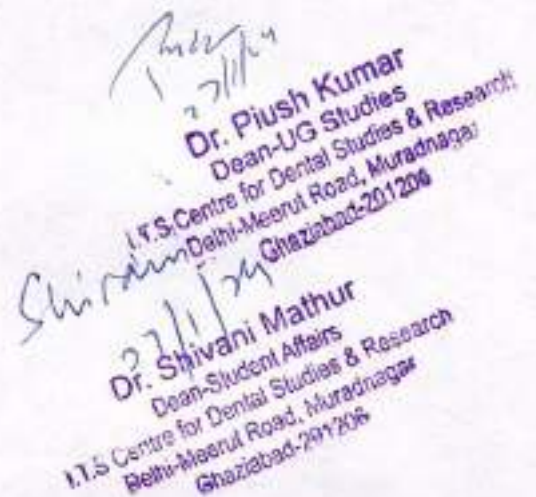 27/1/24
Dr. Piush Kumar
Dean-UG Studies
I.T.S Centre for Dental Studies & Research
Delhi-Meerut Road, Muradnagar
Ghaziabad-201206
Shivani
27/1/24
Dr. Shivani Mathur
Dean-Student Affairs
I.T.S Centre for Dental Studies & Research
Delhi-Meerut Road, Muradnagar
Ghaziabad-201206